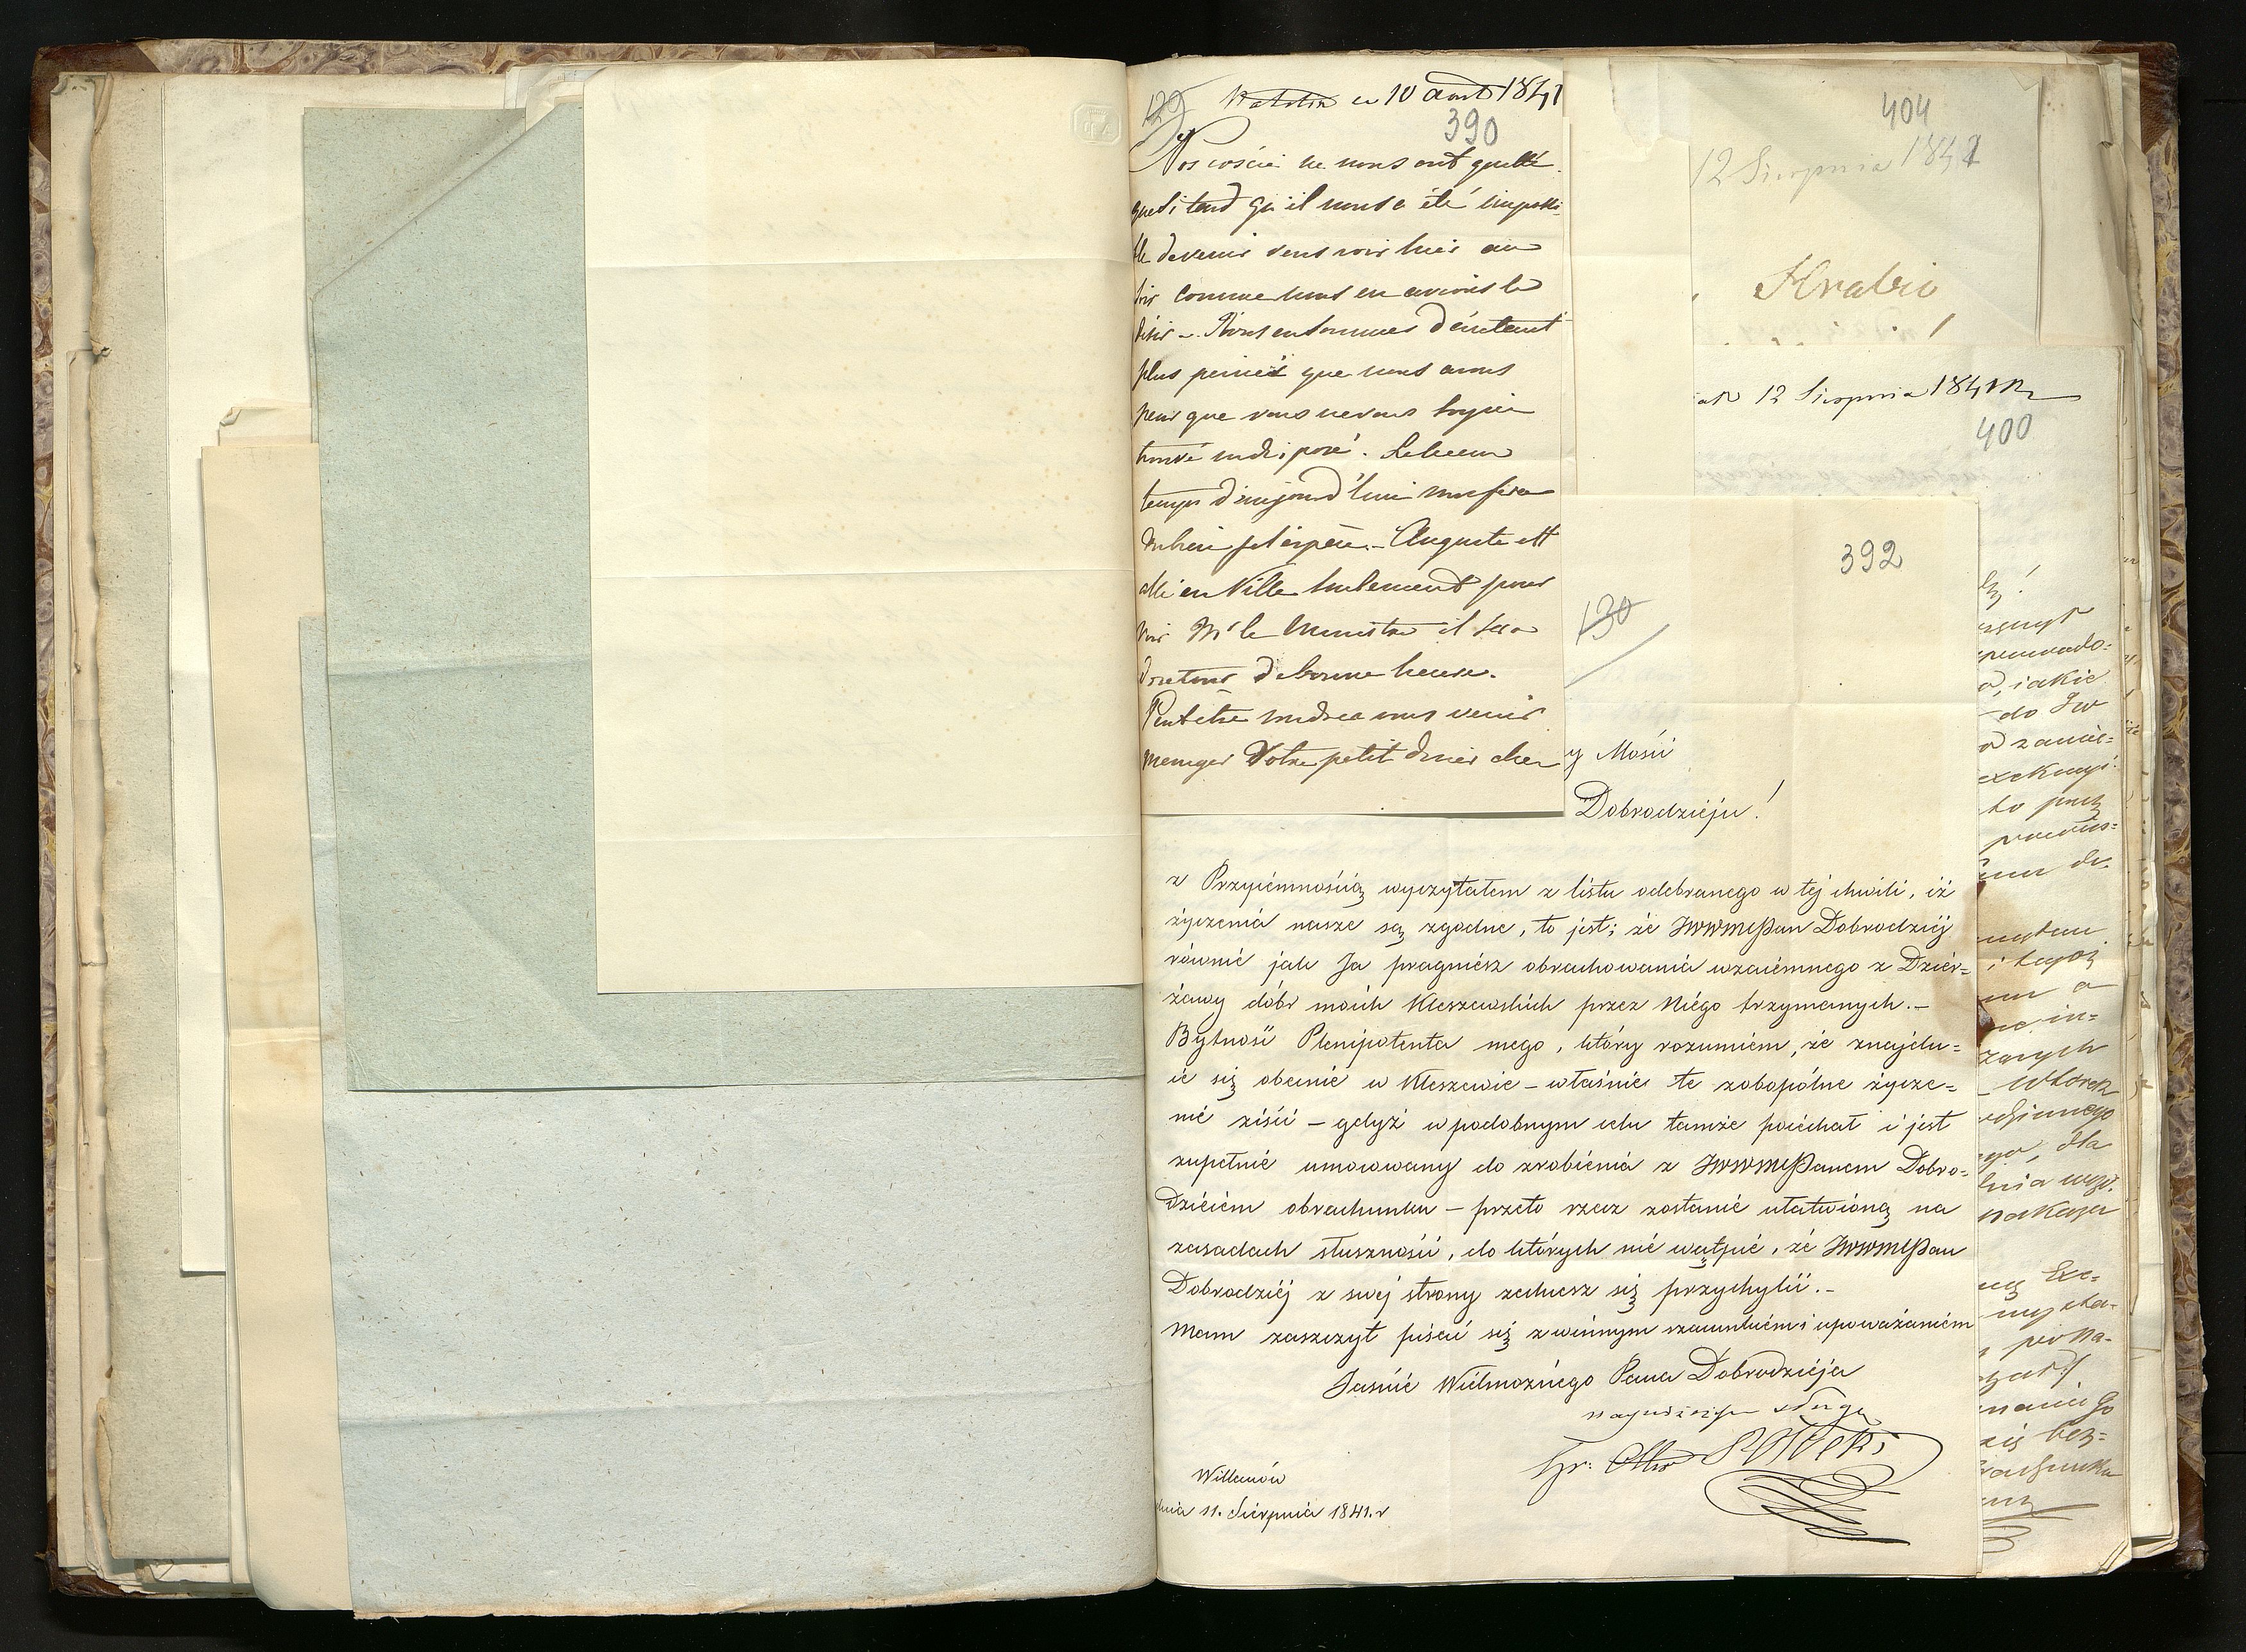 129
Natolin ce 10 août 1841
390
Nos ne nous ont quitté
que si tard qu'il nous a été impossi-
ble de venir vous voir hier au
soir comme nous en avions le
désir - Nous en sommes d'autant
plus peinés que nous avons
peur que vous ne vous soyez
trouvé indisposé. Le beau
temps d'aujourd'hui vous fera
du bien j'espère. - Auguste est
allé en Ville seulement pour
voir Mr le Ministre il sera
de retour de bonne heure.
Peut être voudrez vous venir
manger Votre petit diner chez
392
130
y Mości
Dobrodzieju!
z Przyiémnością wyczytałem z listu odebranego w tej chwili, iż
życzenia nasze są zgodne, to jest; że JWWMPan Dobrodziéj
równie jak Ja pragniesz obrachowania wzaiémnego z Dziér=
żawy dóbr moich Kleszewskich przez Niégo trzymanych. -
Bytność Plenipotenta mego, który rozumiém, że znajdu=
ie się obecnie w Kleszewie - właśnie te zobopólne życze=
nie ziści - gdyż w podobnym celu tamże poiéchał i jest
zupełnie umocowany do zrobiénia z JWWMPanem Dobro=
dziéiém obrachunku - przeto rzecz zostanie ułatwioną na
zasadach słuszności, do których nié wątpié, że JWWMPan
Dobrodziéj z swéj strony zechcesz się przychylić. -
Mam zaszczyt pisać się z winnym szacunkiém i upoważaniém
Jaśnie Wielmożnego Pana Dobrodzieja
sługa
hr: Potocki
Willanów
dnia 11. Sierpnia 1841. r
404
12 Sierpnia 1841
Hrabio
12 Sierpnia 1841 r
400
iakie
do JW
to
i tegoż
dla